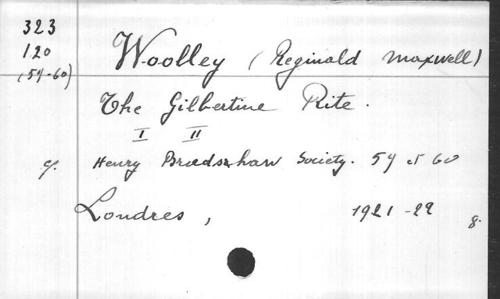 323
120
(59-60)
Woolley (Reginald Maxwell)
The Gilbertine Rite.
I II
cf. Henry Bradshaw Society. 59 et 60
Londres, 1921-22 8.